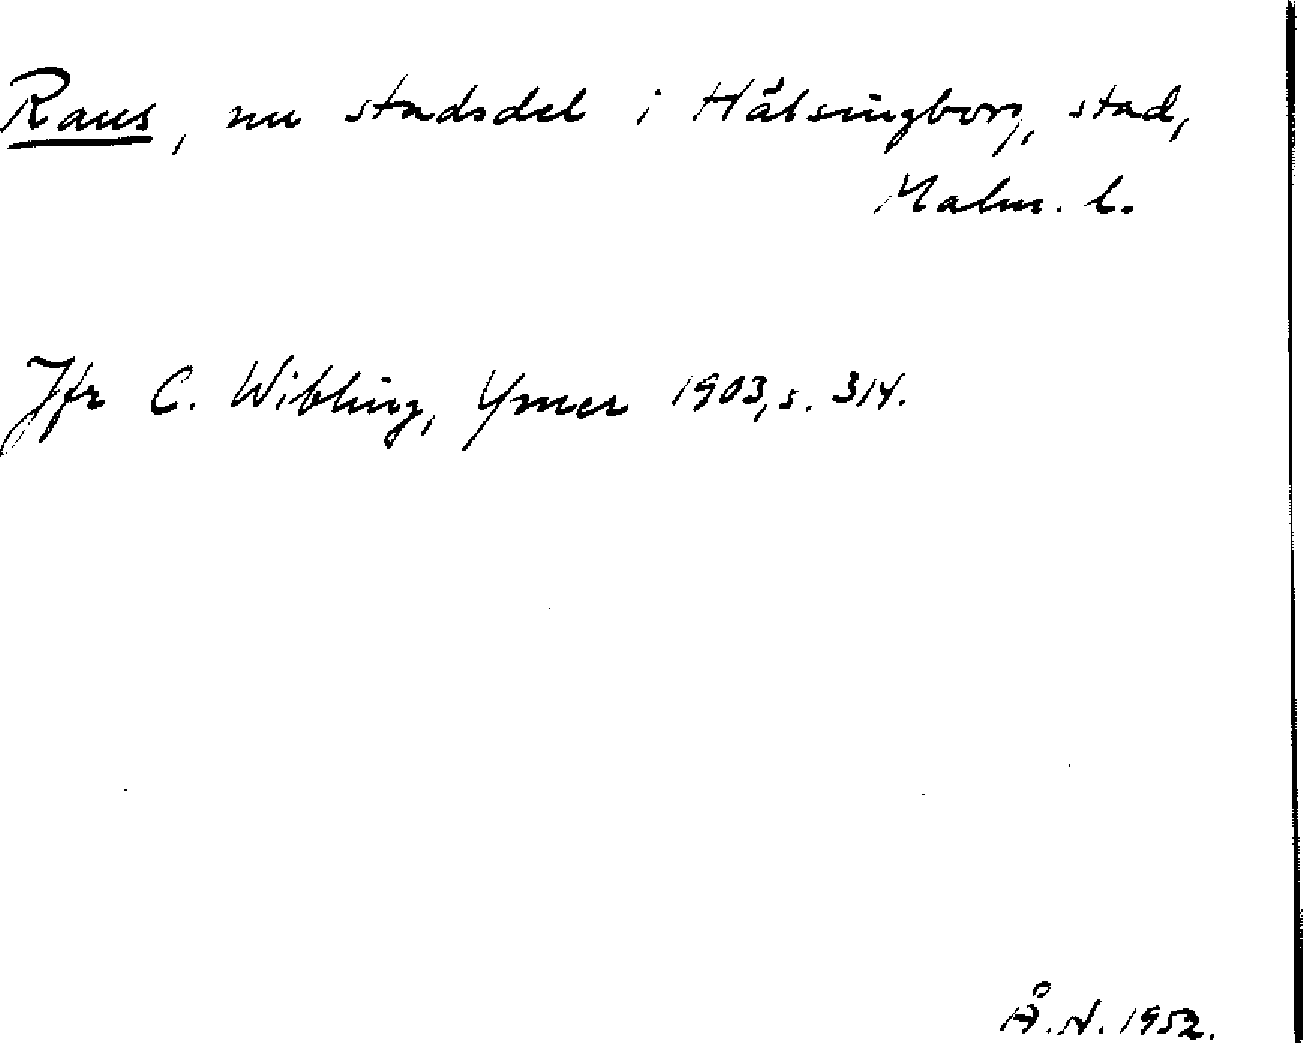 Raus, nu stadsdel i Hälsingborg, stad,
Malm. l.
Jfr C. Wibling, Ymer 1903, s. 314.
Å. N. 1952.